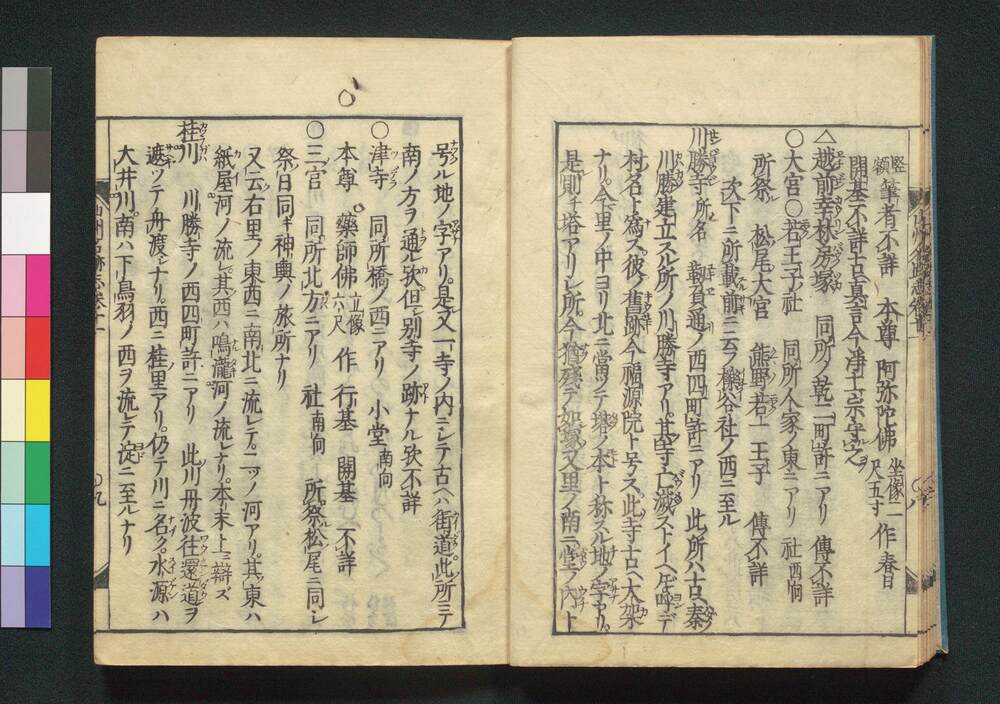 竪額 筆者不詳 本尊 阿弥陀佛 坐像二尺五寸 作春日
開基不詳古真言今淨土宗守之
△越前幸林房塚 同所ノ乾二町許ニアリ 傳不詳
○大宮○若王子ノ社 同所人家ノ東ニアリ 社西向
所祭 松尾大宮 熊野若一王子 傳不詳
次下ニ所載前ニ云フ櫟谷社ノ西ニ至ル
川勝寺所名 ノ西四町許ニアリ 此所ハ古秦
川勝建立スル所ノ川勝寺アリ其寺亡滅ストイヘ𪜈呼デ
村名ト為ス彼ノ舊跡今福源院ト号ス此寺古ヘ大架
ナリ今里ノ中ヨリ北ニ當ツテ塔ノ本ト称スル地ノ字アリ
是則チ塔アリシ所今猶残テ如塚又里ノ南ニ堂ノ内ト
号ル地ノ字アリ是又一寺ノ内ニシテ古ヘハ街道此所ニテ
南ノ方ヲ通ル欤但シ別寺ノ跡ナル欤不詳
○津寺 同所橋ノ西ニアリ 小堂南向
本尊 藥師佛 立像六尺 作 行基 開基 不詳
○三宮 同所北方ニアリ 社南向 所祭松尾ニ同シ
祭日同キ神輿ノ旅所ナリ
又云右里ノ東西ニ南北ニ流レテ二ツノ河アリ其東ハ
紙屋河ノ流レ其西ハ鳴瀧河ノ流レナリ本末上ニ辯ズ
桂川 川勝寺ノ西四町許ニアリ 此川丹波往還道ヲ
遮ツテ舟渡シナリ西ニ桂里アリ仍テ川ニ名ク水源ハ
大井川南ハ下鳥羽ノ西ヲ流レテ淀ニ至ルナリ
山州名跡志巻十一
○九